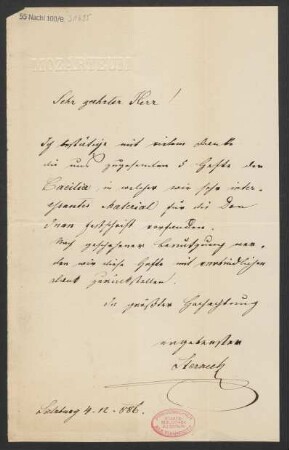 MOZARTEUM
Sehr geehrter Herr!
Ich bestätige mit vielem Danke
die uns zugesendeten 5 Hefte der
Caecilia, in welcher wir sehr inter-
essantes Material für die Don
Juan Festschrift vorfanden.
Nach geschehener Benützung wer-
den wir diese Hefte mit verbindlichem
Dank zurückstellen.
In größter Hochachtung
ergebenster
Sterneck
Salzburg 4.12.886.